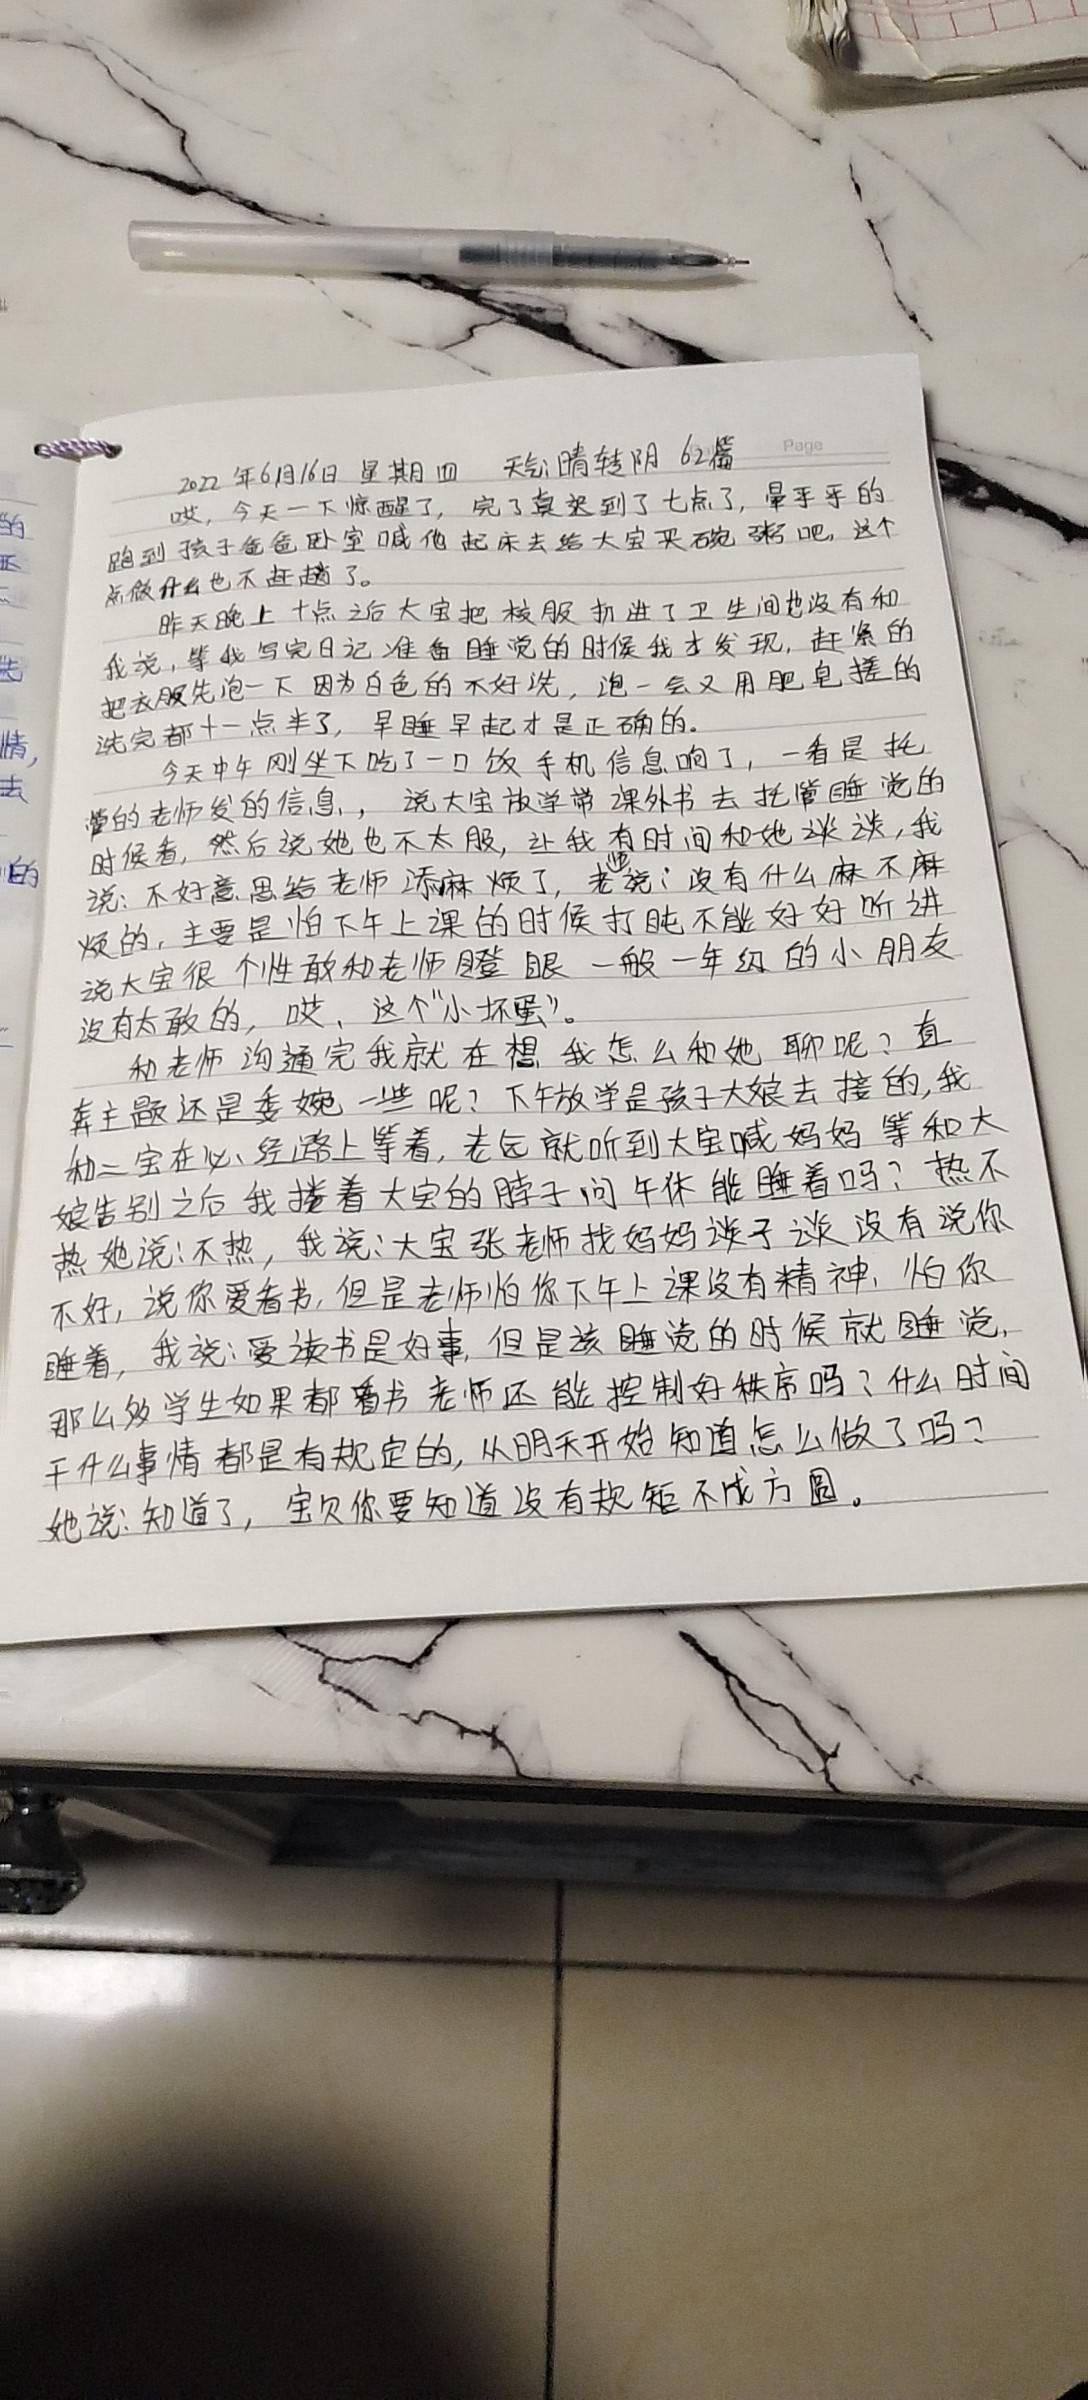 Page
2022年6月16日 星期四 天气:晴转阴 62篇
哎,今天一下惊醒了,完了真迟到了七点了,晕乎乎的
跑到孩子爸爸卧室喊他起床去给大宝买碗粥吧,这个
点做什么也不赶趟了。
昨天晚上十点之后大宝把校服扔进了卫生间也没有和
我说,等我写完日记准备睡觉的时候我才发现,赶紧的
把衣服先泡一下因为白色的不好洗,泡一会又用肥皂搓的
洗完都十一点半了,早睡早起才是正确的。
今天中午刚坐下吃了一口饭手机信息响了,一看是托
管的老师发的信息,说大宝放学带课外书去托管睡觉的
时候看,然后说她也不太服,让我有时间和她谈谈,我
说:不好意思给老师添麻烦了,老师说:没有什么麻不麻
烦的,主要是怕下午上课的时候打盹不能好好听讲
说大宝很个性敢和老师瞪眼一般一年级的小朋友
没有太敢的,哎,这个“小坏蛋”。
和老师沟通完我就在想我怎么和她聊呢?直
奔主题还是委婉一些呢?下午放学是孩子大娘去接的,我
和二宝在必经路上等着,老远就听到大宝喊妈妈等和大
娘告别之后我搂着大宝的脖子问午休能睡着吗?热不
热她说:不热,我说:大宝张老师找妈妈谈了谈没有说你
不好,说你爱看书,但是老师怕你下午上课没有精神,怕你
睡着,我说:爱读书是好事,但是该睡觉的时候就睡觉,
那么多学生如果都看书老师还能控制好秩序吗?什么时间
干什么事情都是有规定的,从明天开始知道怎么做了吗?
她说:知道了,宝贝你要知道没有规矩不成方圆。
的
情,
去
的